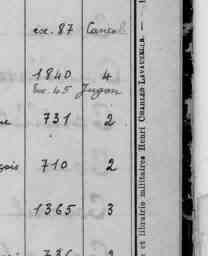 exc. 87 Cancal
1840 4
Exc. 45 Jugon
731 2
çois 710 2
1365 3
736 2
e et librairie militaires Henri CHARLES-LAVAUZELLE. —